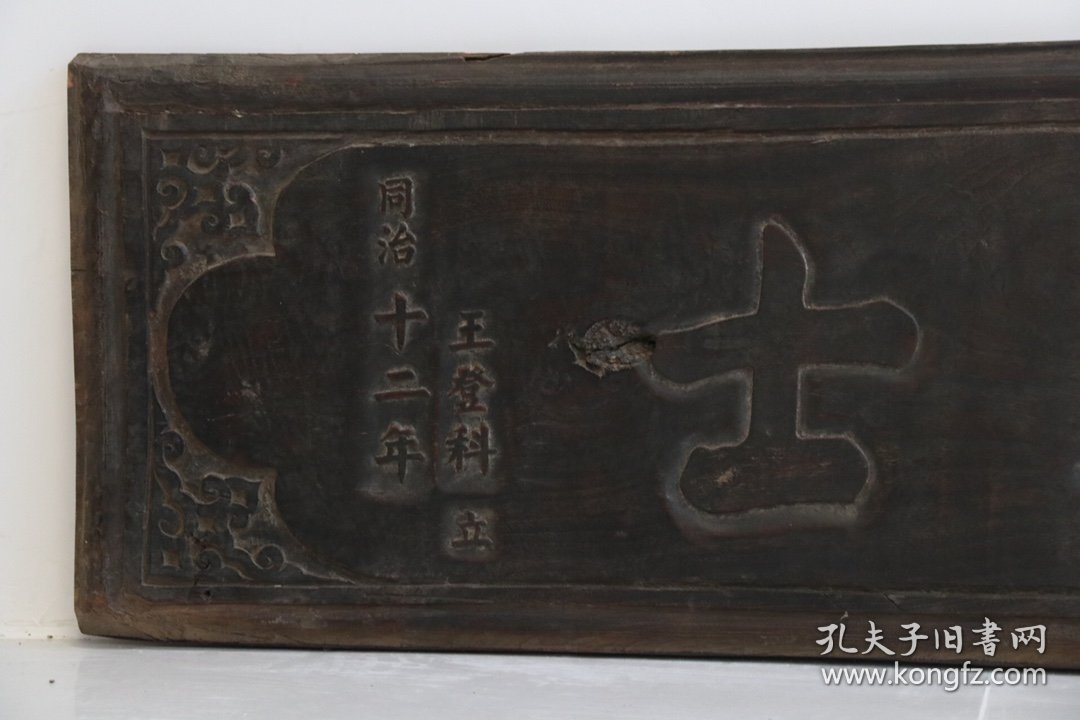 士
王登科立
同治十二年
孔夫子旧書网
www.kongfz.com